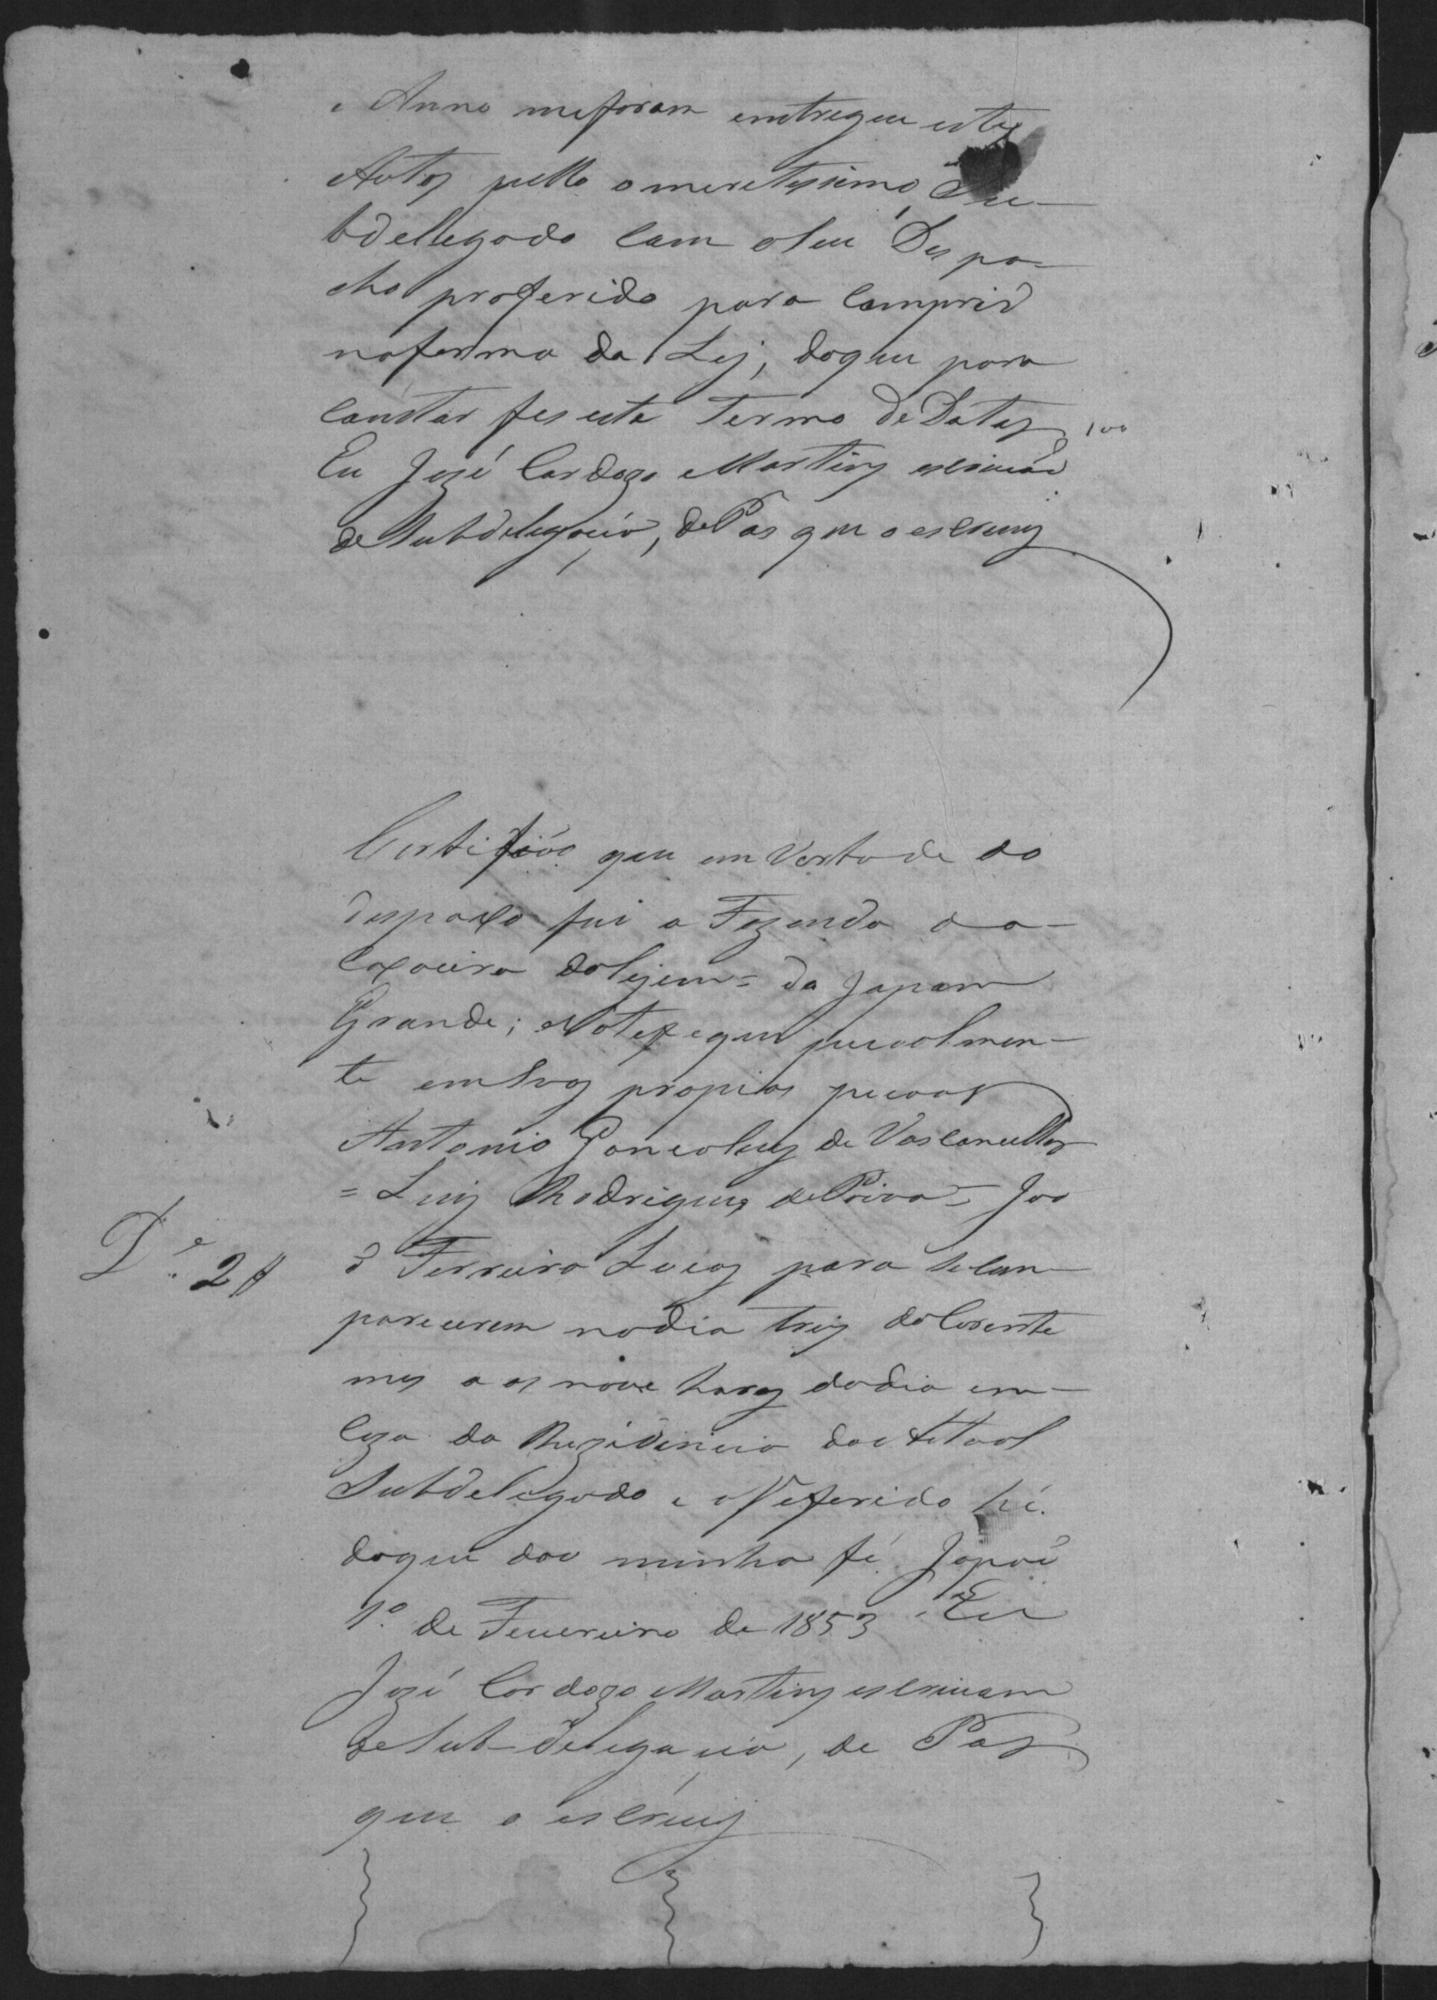 e Anno meforam entregue estes
Autos pello o meretissimo Su-
bdellegado com oseu Despa-
cho proferido para comprir
naforma da Lej, doque para
constar fes este Termo de Datas 100
Eu Jozé Cardozo Martins escrivão
de Subdelegacio, de Pas que o escrevy
Certifico que em Vertude do
despaxo fui a Fazenda da
Caxoeira do
Grande; e Notefeque pecoalmen-
te emSuas propias pecoas
Antonio Goncalves de Vasconcellos
= Luis Rodrigues de Paiva = Joo
o Ferreira Lucas para secom-
parecerem nodia tres do Corente
mes a as nove horas dodia em-
Caza da Rezidencia do
Subdelegado e oReferido hé
doque dou minha fé. Japão
1º. de Feuereiro de 1853 Eu
Jozé Cardozo Martins escrivam
de Sub-delegacio, de Pas
que o escrevy